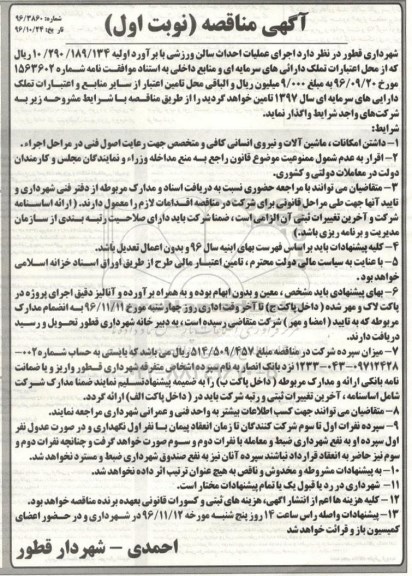 آگهی مناقصه (نوبت اول)
شماره: ۹۶/۳۸۶۰
تاریخ: ۹۶/۱۰/۲۴
شهرداری قطور در نظر دارد اجرای عملیات احداث سالن ورزشی با برآورد اولیه ۱۰/۲۹۰/۱۸۹/۱۳۴ ریال
که از محل اعتبارات تملک دارائی های سرمایه ای و منابع داخلی به استناد موافقت نامه شماره ۱۵۶۳۶۰۲
مورخ ۹۶/۰۹/۲۰ به مبلغ ۹/۰۰۰ میلیون ریال و الباقی محل تامین اعتبار از سایر منابع و اعتبارات تملک
دارایی های سرمایه ای سال ۱۳۹۷ تامین خواهد گردید را از طریق مناقصه با شرایط مشروحه زیر به
شرکت‌های واجد شرایط واگذار نماید.
شرایط:
۱- داشتن امکانات ، ماشین آلات و نیروی انسانی کافی و متخصص جهت رعایت اصول فنی در مراحل اجراء.
۲- اقرار به عدم شمول ممنوعیت موضوع قانون راجع به منع مداخله وزراء و نمایندگان مجلس و کارمندان
دولت در معاملات دولتی و کشوری.
۳- متقاضیان می توانند با مراجعه حضوری نسبت به دریافت اسناد و مدارک مربوطه از دفتر فنی شهرداری و
تایید آنها جهت طی مراحل قانونی برای شرکت در مناقصه اقدامات لازم را معمول دارند. ( ارائه اساسنامه
شرکت و آخرین تغییرات ثبتی آن الزامی است ، ضمنا شرکت باید دارای صلاحیت رتبه بندی از سازمان
مدیریت و برنامه ریزی باشد.)
۴- کلیه پیشنهادات باید براساس فهرست بهای ابنیه سال ۹۶ و بدون اعمال تعدیل باشد.
۵- با عنایت به سیاست مالی دولت محترم ، تامین اعتبار مالی طرح از طریق اوراق اسناد خزانه اسلامی
خواهد بود.
۶- بهای پیشنهادی باید مشخص ، معین و بدون ابهام بوده و به همراه برآورده و آنالیز دقیق اجرای پروژه در
پاکت لاک و مهر شده ( داخل پاکت ج) تا آخر وقت اداری روز چهارشنبه مورخ ۹۶/۱۱/۱۱ به انضمام مدارک
مربوطه که به تایید ( امضا و مهر ) شرکت متقاضی رسیده است ، به دبیر خانه شهرداری قطور تحویل و رسید
دریافت دارند.
۷- میزان سپرده شرکت در مناقصه مبلغ ۵۱۴/۵۰۹/۴۵۷ ریال می باشد که بایستی به حساب شماره ۰۰۲-
۰۹۷۱۴۲۸-۰۴۳-۱۲۳۳ نزد بانک انصار به نام سپرده اشخاص متفرقه شهرداری قطور واریز و یا ضمانت
نامه بانکی ارائه و مدارک مربوطه ( داخل پاکت ب) را به ضمیمه پیشنهاد تسلیم نمایند ضمنا مدارک شرکت
شامل اساسنامه ، آخرین تغییرات ثبتی و رتبه شرکت باید در ( داخل پاکت الف) ارائه گردد.
۸- متقاضیان می توانند جهت کسب اطلاعات بیشتر به واحد فنی و عمرانی شهرداری مراجعه نمایند.
۹- سپرده نفرات اول تا سوم شرکت کنندگان تا زمان انعقاد پیمان با نفر اول نگهداری و در صورت عدول نفر
اول سپرده او به نفع شهرداری ضبط و معامله با نفرات دوم و سوم صورت خواهد گرفت و چنانچه نفرات دوم و
سوم نیز حاضر به انعقاد قرارداد نباشند سپرده آنان نیز به نفع صندوق شهرداری ضبط و مسترد نخواهد شد.
۱۰- به پیشنهادات مشروطه و مخدوش و ناقص به هیچ عنوان ترتیب اثر داده نخواهد شد.
۱۱- شهرداری در رد یا قبول یک یا تمام پیشنهادات مختار است.
۱۲- کلیه هزینه ها اعم از انتشار آگهی، هزینه های ثبتی و کسورات قانونی بعهده برنده مناقصه خواهد بود.
۱۳- پیشنهادات واصله راس ساعت ۱۴ روز پنج شنبه مورخه ۹۶/۱۱/۱۲ در شهرداری و در حضور اعضای
کمیسیون باز و قرائت خواهد شد
احمدی - شهردار قطور